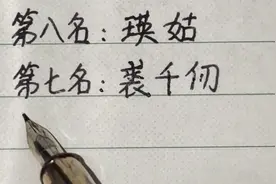 第八名：瑛姑
第七名：裘千仞